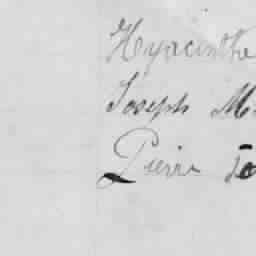 Hyacinthe
Joseph M
Pierre